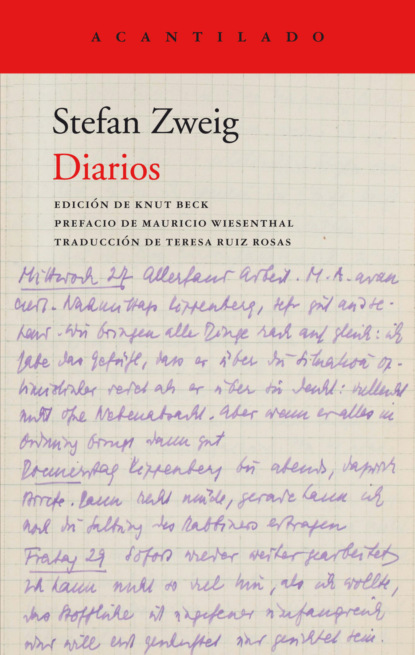 ACANTILADO
Stefan Zweig
Diarios
EDICIÓN DE KNUT BECK
PREFACIO DE MAURICIO WIESENTHAL
TRADUCCIÓN DE TERESA RUIZ ROSAS
Mittwoch 27 Allerhand Arbeit. M. A. avan
ciert. Nachmittags Kippenberg, sehr gut
Wir bringen alle Dinge rasch auf gleich: ich
habe das Gefühl, dass er über die Situation op-
timistischer redet als er über sie denkt: vielleicht
nicht ohne Nebenabsicht. Aber wenn er alles in
Ordnung bringt dann gut
Donnerstag Kippenberg bis abends,
Briefe. Dann recht müde, gerade kann ich
noch die des Rabbiners ertragen
Freitag 29 Sofort wieder weiter gearbeitet
Ich kann nicht so viel tun, als ich wollte,
das Stoffliche ist ungeheuer umfangreich
und will erst und gesichtet sein.